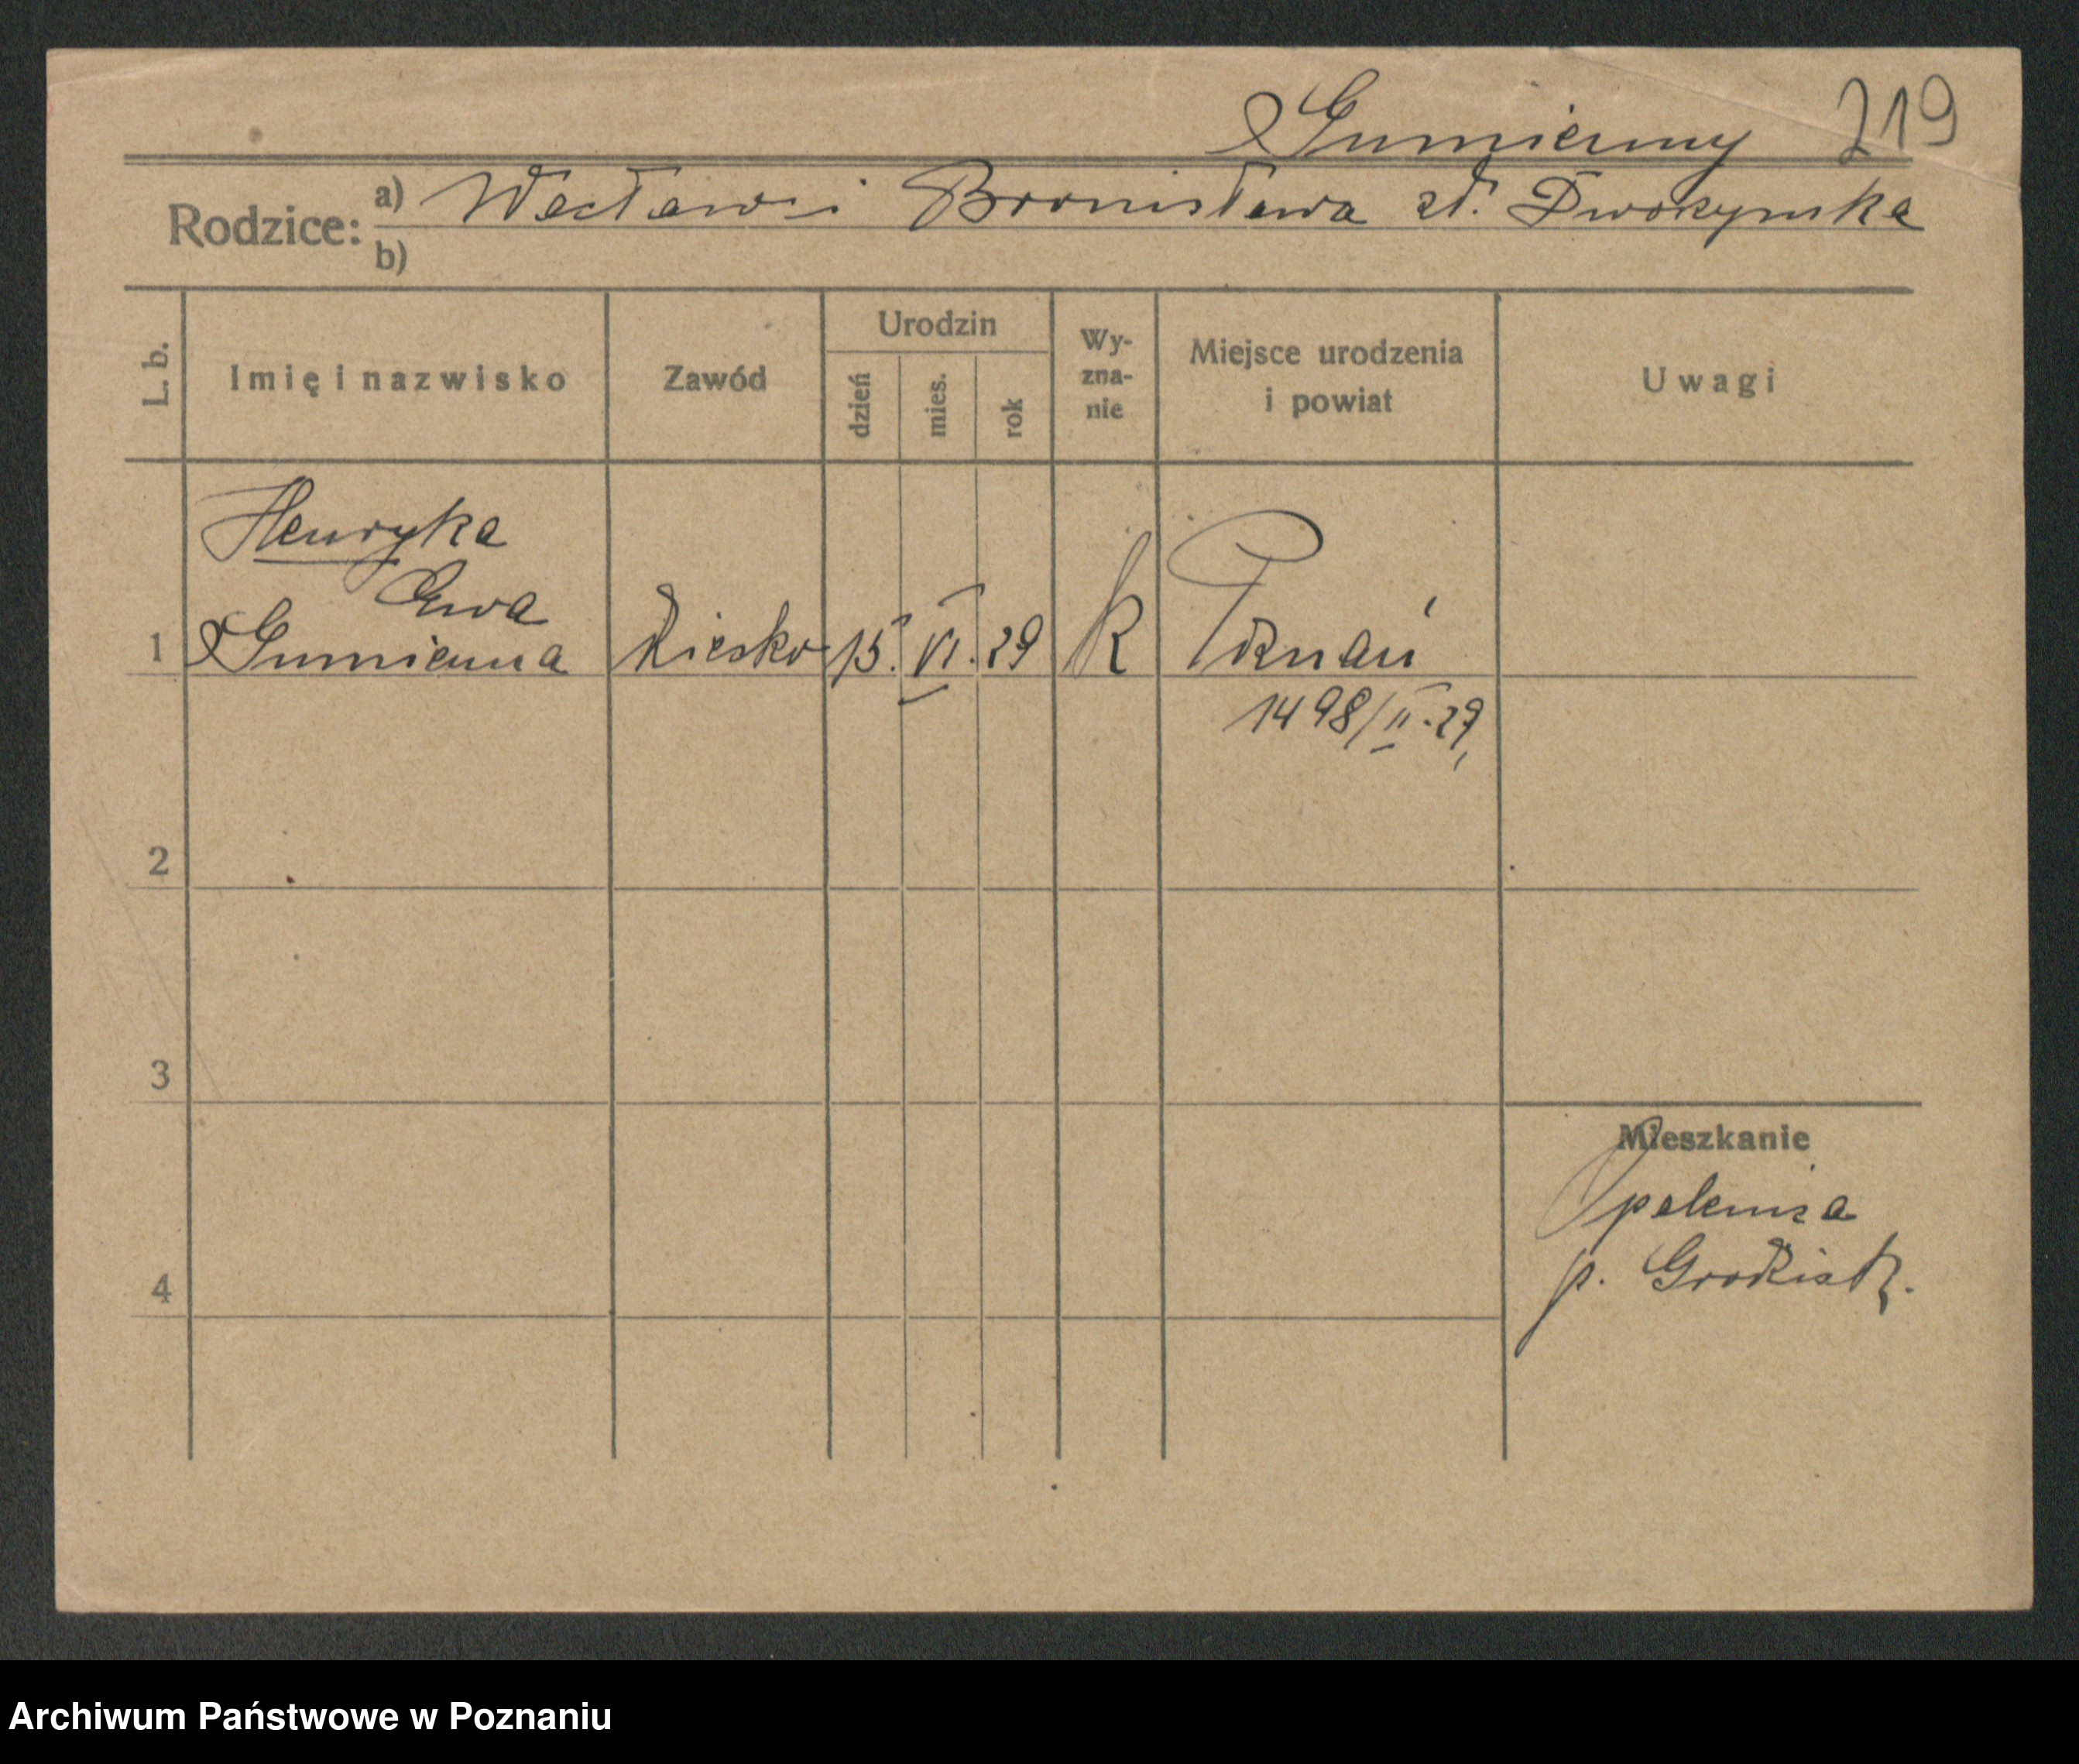 Sumienny 219
Rodzice: a) Wacław i Bronisława zd. Dworzyńska
b)
L. b.
Imię i nazwisko
Zawód
Urodzin
dzień
mies.
rok
Wy-
zna-
nie
Miejsce urodzenia
i powiat
Uwagi
Henryka
Ewa
1 Sumienna dziecko 15. VI. 29 k Poznań
1498/II.29,
2
3
4
Mieszkanie
Opalenica
p. Grodzisk.
Archiwum Państwowe w Poznaniu